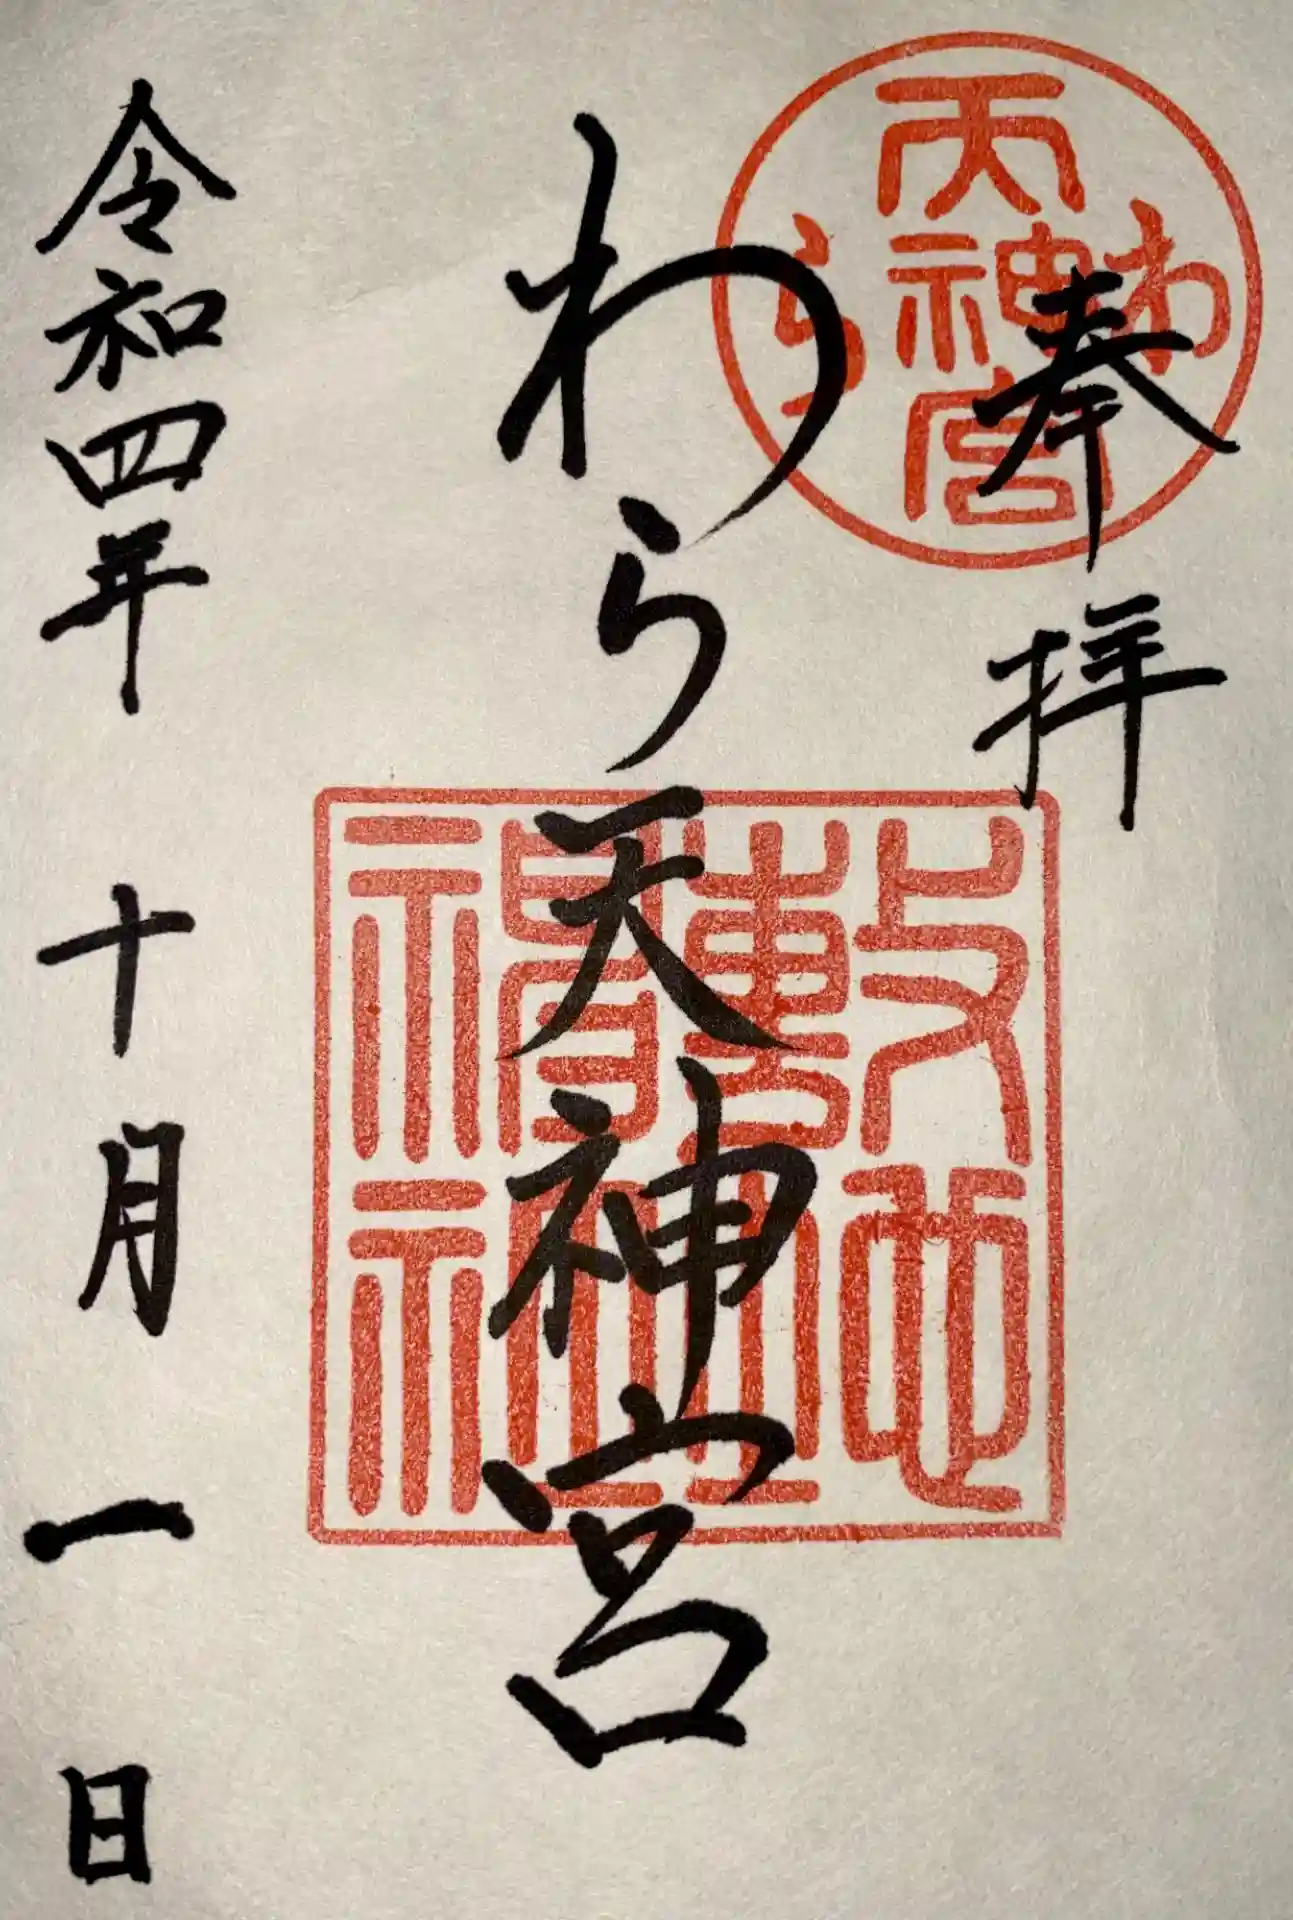 奉拝
わら天神宮
令和四年 十月一日
わら
天神宮
敷地神社